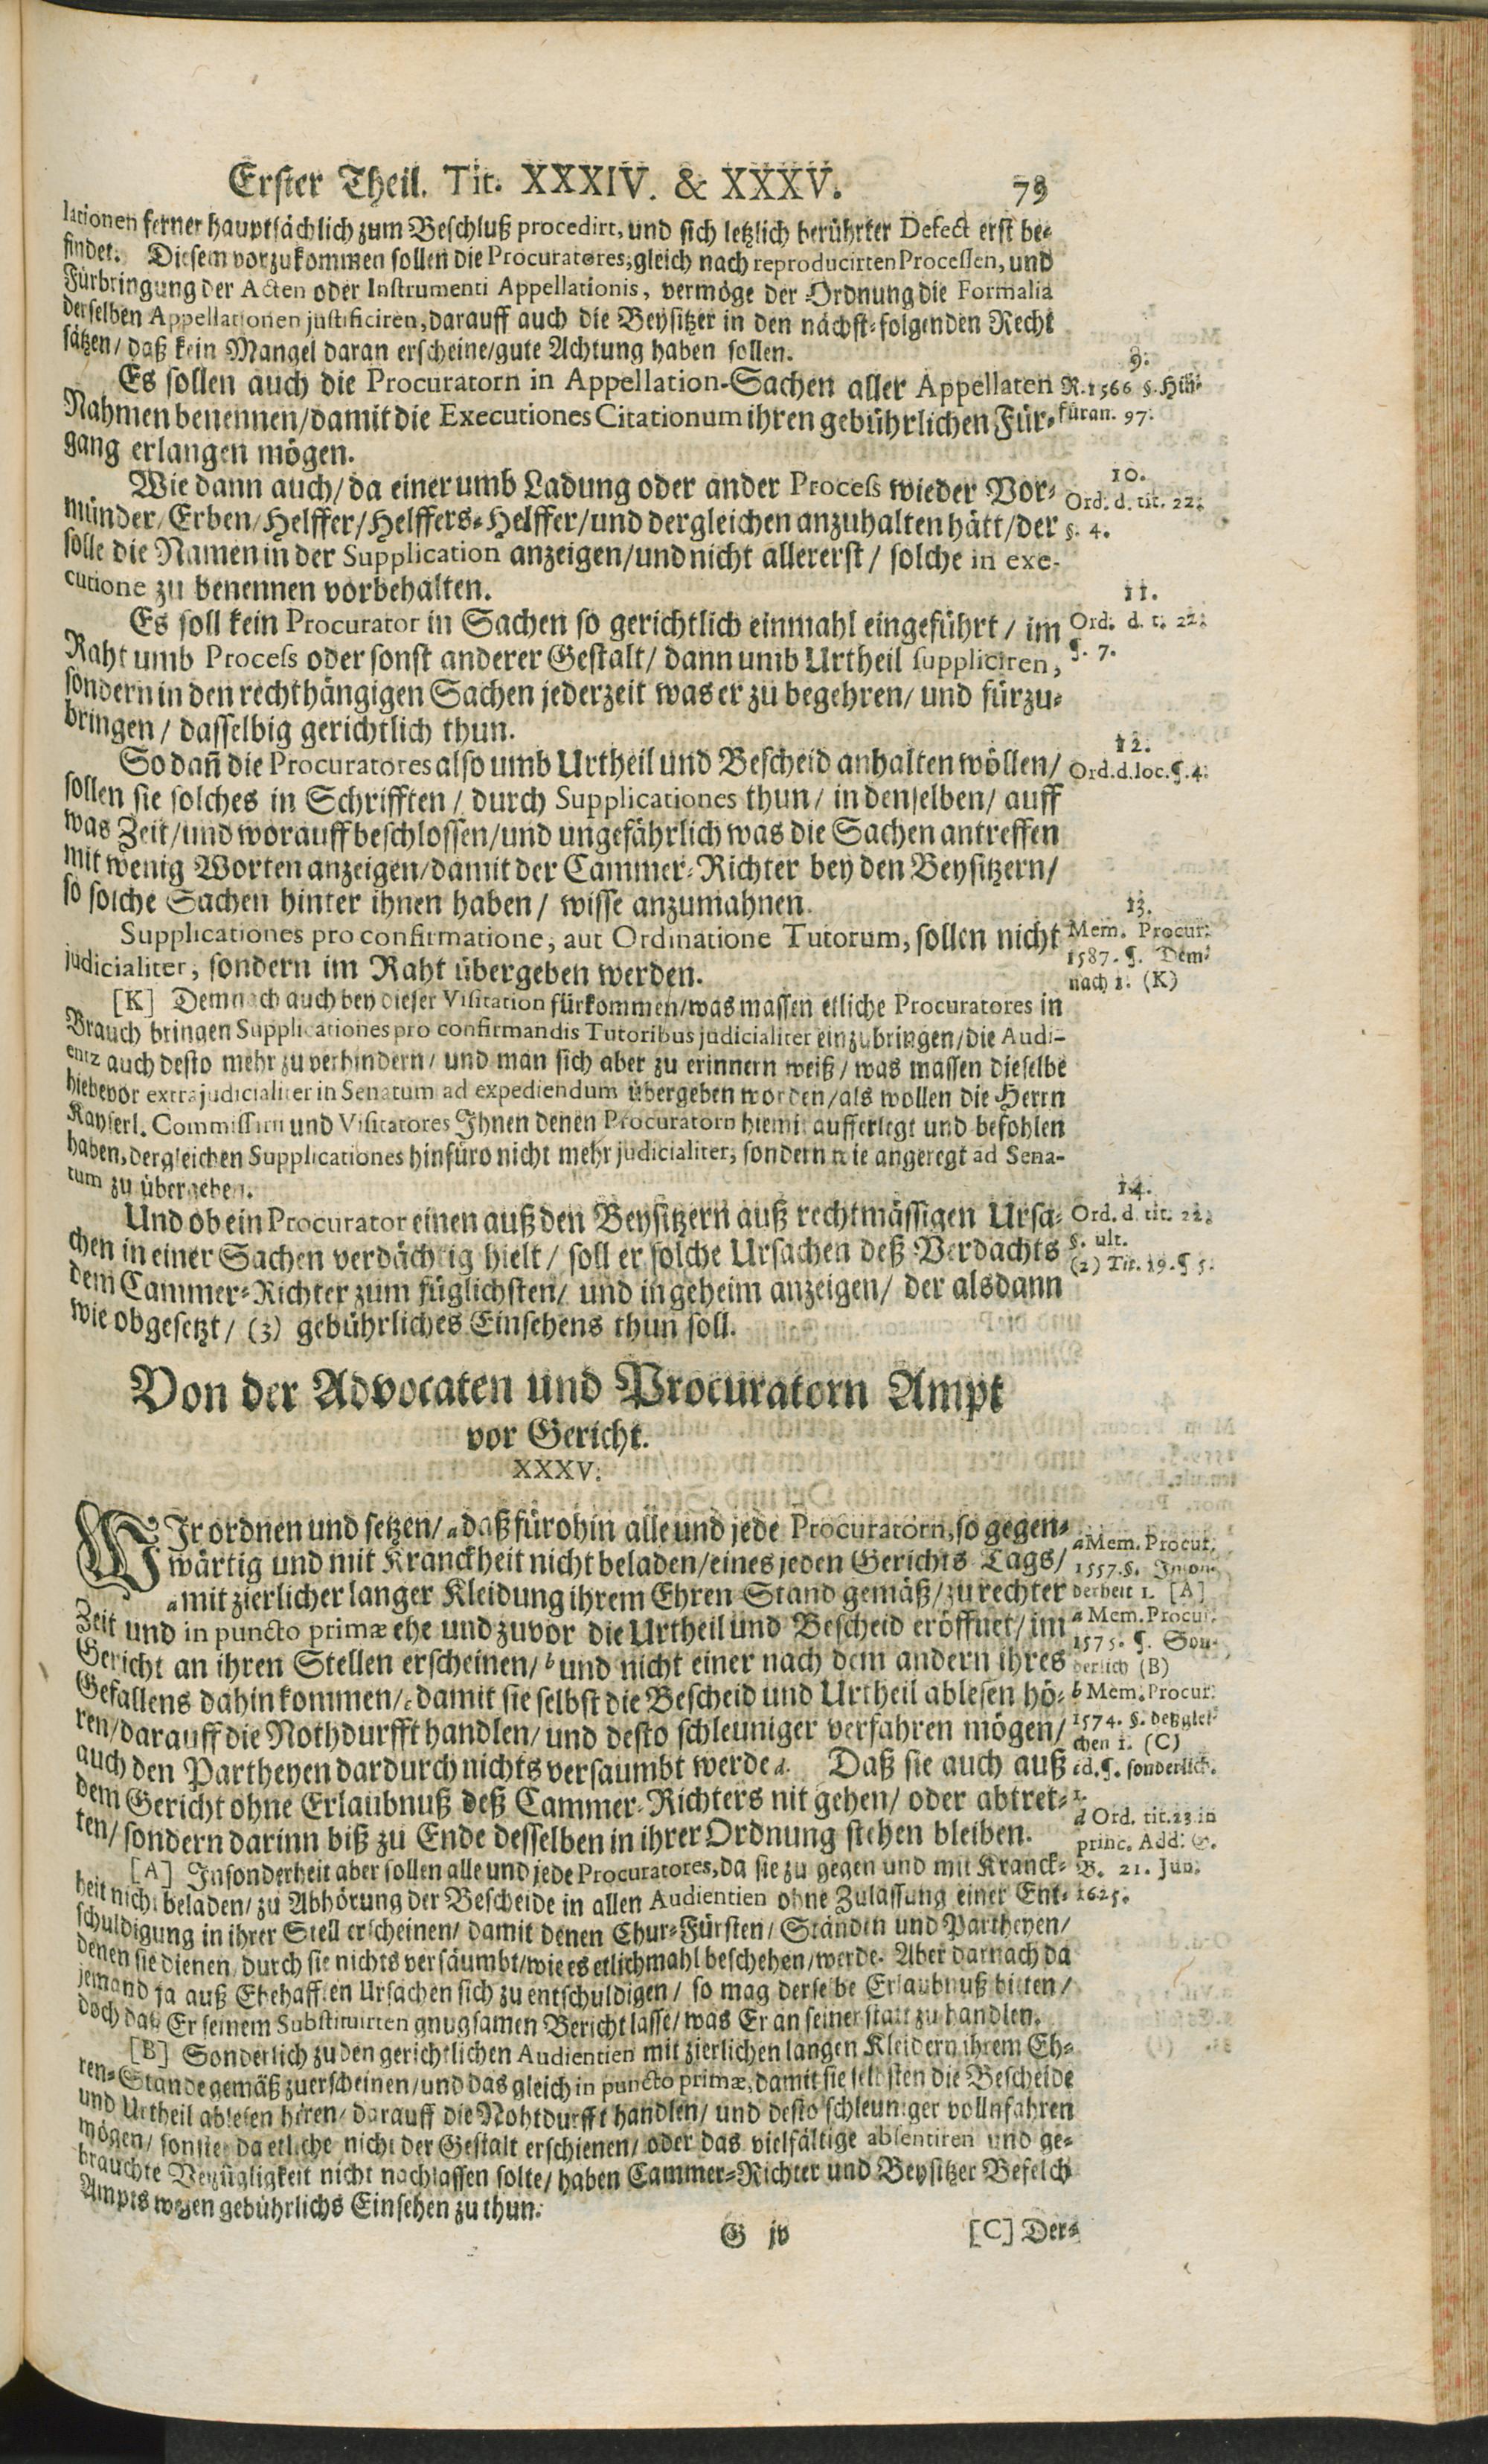 Erster Theil. Tit. XXXIV. & XXXV. 79
lationen ferner hauptsächlich zum Beschluß procedirt, und sich letzlich berührter Defect erst be-
findet. Diesem vorzukommen sollen die Procuratores, gleich nach reproducirten Processen, und
Fürbringung der Acten oder Instrumenti Appellationis, vermöge der Ordnung die Formalia
derselben Appellationen justificiren, darauff auch die Beysitzer in den nächst-folgenden Recht
sätzen/ daß kein Mangel daran erscheine/ gute Achtung haben sollen.
9.
Es sollen auch die Procuratorn in Appellation-Sachen aller Appellaten R. 1566 §. Hin-
Nahmen benennen/ damit die Executiones Citationum ihren gebührlichen Für- füran. 97.
gang erlangen mögen.
10.
Wie dann auch/ da einer umb Ladung oder ander Process wieder Vor- Ord. d. tit. 22.
münder/ Erben/ Helffer/ Helffers-Helffer/ und dergleichen anzuhalten hätt/ der §. 4.
solle die Namen in der Supplication anzeigen/ und nicht allererst/ solche in exe-
cutione zu benennen vorbehalten.
11.
Es soll kein Procurator in Sachen so gerichtlich einmahl eingeführt/ im Ord. d. t. 22.
Raht umb Process oder sonst anderer Gestalt/ dann umb Urtheil suppliciren, ¶. 7.
sondern in den rechthängigen Sachen jederzeit was er zu begehren/ und fürzu-
bringen/ dasselbig gerichtlich thun.
12.
So dañ die Procuratores also umb Urtheil und Bescheid anhalten wöllen/ Ord. d. loc. ¶. 4.
sollen sie solches in Schrifften/ durch Supplicationes thun/ in denselben/ auff
was Zeit/ und worauff beschlossen/ und ungefährlich was die Sachen antreffen
mit wenig Worten anzeigen/ damit der Cammer-Richter bey den Beysitzern/
so solche Sachen hinter ihnen haben/ wisse anzumahnen.
13.
Supplicationes pro confirmatione, aut Ordinatione Tutorum, sollen nicht Mem. Procur.
judicialiter, sondern im Raht übergeben werden. 1587. ¶. Dem-
nach 1. (K)
[K] Demnach auch bey dieser Visitation fürkommen/ was massen etliche Procuratores in
Brauch bringen Supplicationes pro confirmandis Tutoribus judicialiter einzubringen/ die Audi-
entz auch desto mehr zu verhindern/ und man sich aber zu erinnern weiß/ was massen dieselbe
hiebevor extrajudicialiter in Senatum ad expediendum übergeben worden/ als wollen die Herrn
Kayserl. Commissarii und Visitatores Ihnen denen Procuratorn hiemit aufferlegt und befohlen
haben, dergleichen Supplicationes hinfüro nicht mehr judicialiter, sondern wie angeregt ad Sena-
tum zu übergeben.
14.
Und ob ein Procurator einen auß den Beysitzern auß rechtmässigen Ursa- Ord. d. tit. 22.
chen in einer Sachen verdächtig hielt/ soll er solche Ursachen deß Verdachts §. ult.
dem Cammer-Richter zum füglichsten/ und in geheim anzeigen/ der alsdann (2) Tit. 19. ¶ 5.
wie obgesetzt/ (3) gebührliches Einsehens thun soll.
Von der Advocaten und Procuratorn Ampt
vor Gericht.
XXXV.
WIr ordnen und setzen/ a daß fürohin alle und jede Procuratorn, so gegen- a Mem. Procur.
wärtig und mit Kranckheit nicht beladen/ eines jeden Gerichts Tags/ 1557. §. Inson-
a mit zierlicher langer Kleidung ihrem Ehren-Stand gemäß/ zu rechter derheit 1. [A]
Zeit und in puncto primæ ehe und zuvor die Urtheil und Bescheid eröffnet/ im a Mem. Procur.
Gericht an ihren Stellen erscheinen/ b und nicht einer nach dem andern ihres 1575. ¶. Son-
derlich (B)
Gefallens dahin kommen/ c damit sie selbst die Bescheid und Urtheil ablesen hö- b Mem. Procur.
ren/ darauff die Nothdurfft handlen/ und desto schleuniger verfahren mögen/ 1574. §. deßglei-
chen 1. (C)
auch den Partheyen dardurch nichts versaumbt werde d. Daß sie auch auß c d. ¶. sonderlich.
dem Gericht ohne Erlaubnuß deß Cammer-Richters nit gehen/ oder abtret- 1.
ten/ sondern darinn biß zu Ende desselben in ihrer Ordnung stehen bleiben. d Ord. tit. 23 in
princ. Add. G.
[A] Insonderheit aber sollen alle und jede Procuratores, da sie zu gegen und mit Kranck- B. 21. Jun.
heit nicht beladen/ zu Abhörung der Bescheide in allen Audientien ohne Zulassung einer Ent- 1625.
schuldigung in ihrer Stell erscheinen/ damit denen Chur-Fürsten/ Ständen und Partheyen/
denen sie dienen, durch sie nichts versäumbt/ wie es etlichmahl beschehen/ werde. Aber darnach da
jemand ja auß Ehehafften Ursachen sich zu entschuldigen/ so mag derselbe Erlaubnuß bitten/
doch daß Er seinem Substituirten gnugsamen Bericht lasse/ was Er an seiner statt zu handlen.
[B] Sonderlich zu den gerichtlichen Audientien mit zierlichen langen Kleidern ihrem Eh-
ren-Stande gemäß zuerscheinen/ und das gleich in puncto primæ, damit sie selbsten die Bescheide
und Urtheil ablesen hören/ darauff die Nohtdurfft handlen/ und desto schleuniger vollnfahren
mögen/ sonsten da etliche nicht der Gestalt erschienen/ oder das vielfältige absentiren und ge-
brauchte Verzügligkeit nicht nachlassen solte/ haben Cammer-Richter und Beysitzer Befelch
Ampts wegen gebührlichs Einsehen zu thun.
G jv [C] Der-